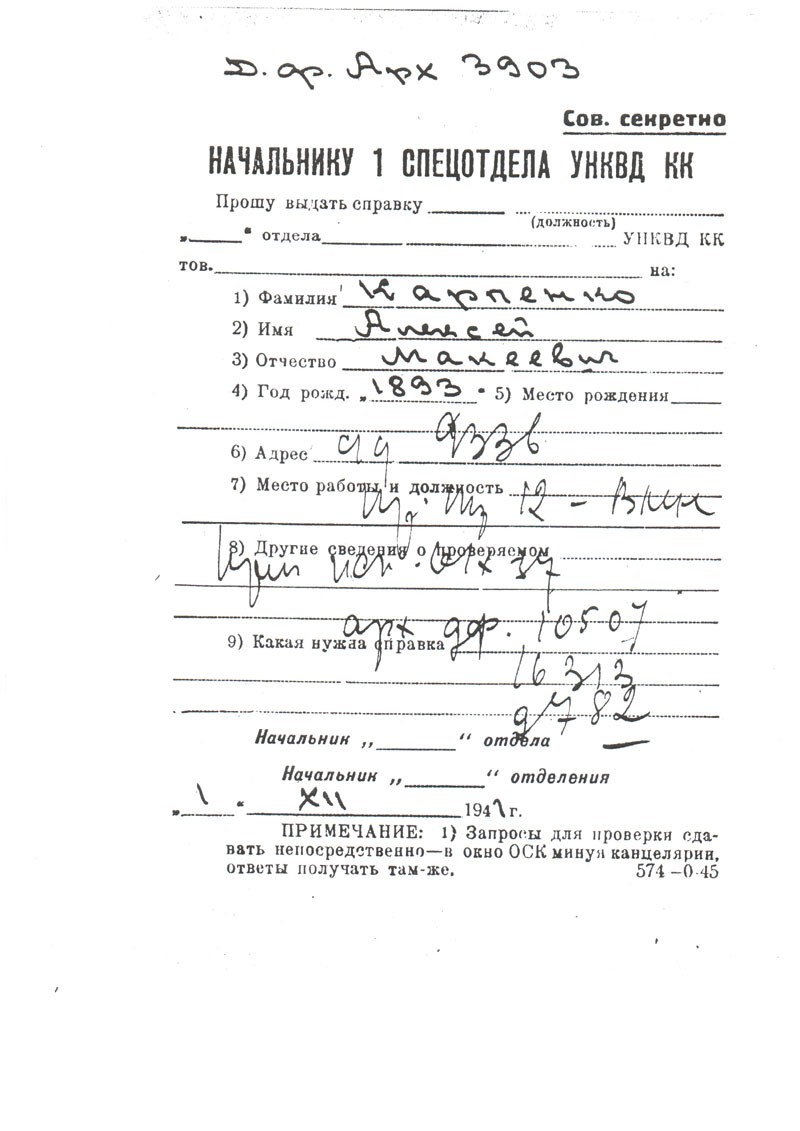 Д. ф. Арх 3903
Сов. секретно
НАЧАЛЬНИКУ 1 СПЕЦОТДЕЛА УНКВД КК
Прошу выдать справку
(должность)
„ “ отдела УНКВД КК
тов. на:
1) Фамилия Карпенко
2) Имя Алексей
3) Отчество Макеевич
4) Год рожд. „1893“ 5) Место рождения
6) Адрес
7) Место работы и должность
12 –
8) Другие сведения о проверяемом
арх дф. 10507
9) Какая нужна справка
16313
9782
Начальник „ “ отдела
Начальник „ “ отделения
„1“ XII 1941 г.
ПРИМЕЧАНИЕ: 1) Запросы для проверки сда-
вать непосредственно—в окно ОСК минуя канцелярии,
ответы получать там-же. 574–0-45